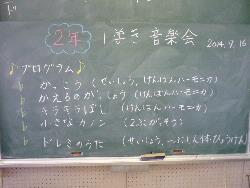 2年 1学き 音楽会 2014.7.16
プログラム
かっこう (せいしょう、けんばんハーモニカ)
かえるのがっしょう (けんばんハーモニカ)
キラキラぼし (けんばんハーモニカ)
小さなカノン (2ぶがっそう)
ドレミのうた (せいしょう、